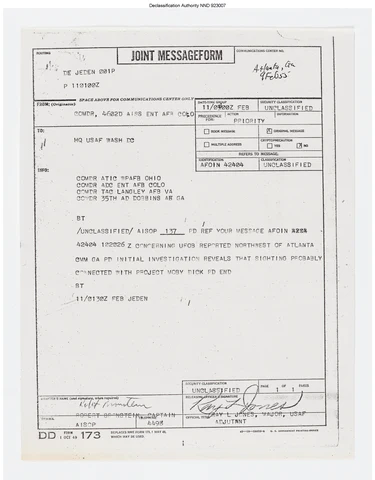 Declassification Authority NND 923007
ROUTING
JOINT MESSAGEFORM
COMMUNICATIONS CENTER NO.
Atlanta, Ga
9Feb55
DE JEDEN 001P
P 110100Z
SPACE ABOVE FOR COMMUNICATIONS CENTER ONLY
FROM: (Originator)
COMDR, 4602D AISS ENT AFB COLO
DATE-TIME GROUP
11/0100Z FEB
SECURITY CLASSIFICATION
UNCLASSIFIED
PRECEDENCE FOR:
ACTION
PRIORITY
INFORMATION
TO:
HQ USAF WASH DC
BOOK MESSAGE
ORIGINAL MESSAGE
MULTIPLE ADDRESS
CRYPTOPRECAUTION
YES
NO
REFERS TO MESSAGE:
IDENTIFICATION
AFOIN 42404
CLASSIFICATION
UNCLASSIFIED
INFO:
COMDR ATIC WPAFB OHIO
COMDR ADC ENT AFB COLO
COMDR TAC LANGLEY AFB VA
COMDR 35TH AD DOBBINS AB GA
BT
/UNCLASSIFIED/ AISOP 137 PD REF YOUR MESSAGE AFOIN
42404 Z CONCERNING UFOB REPORTED NORTHWEST OF ATLANTA
CMM GA PD INITIAL INVESTIGATION REVEALS THAT SIGHTING PROBABLY
CONNECTED WITH PROJECT MOBY DICK PD END
BT
11/0130Z FEB JEDEN
SECURITY CLASSIFICATION
UNCLASSIFIED
PAGE 1 OF 1 PAGES
CAPTAIN
AISOP
4498
RAY L JONES, MAJOR, USAF
OFFICIAL TITLE
ADJUTANT
DD FORM 1 OCT 49 173
REPLACES NME FORM 173, 1 MAY 48, WHICH MAY BE USED.
U. S. GOVERNMENT PRINTING OFFICE
1